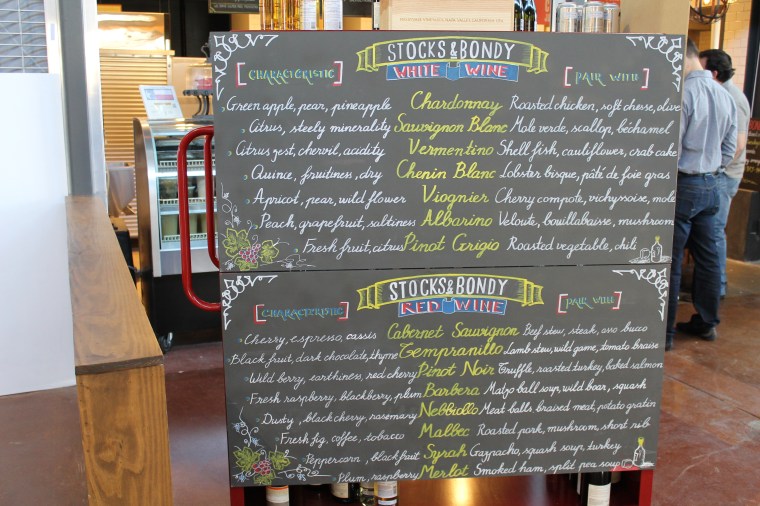 STOCKS & BONDY
CHARACTERISTIC WHITE WINE PAIR WITH
Green apple, pear, pineapple Chardonnay Roasted chicken, soft cheese, olive
Citrus, steely minerality Sauvignon Blanc Mole verde, scallop, béchamel
Citrus zest, chervil, acidity Vermentino Shell fish, cauliflower, crab cake
Quince, fruitiness, dry Chenin Blanc Lobster bisque, pâté de foie gras
Apricot, pear, wild flower Viognier Cherry compote, vichyssoise, mole
Peach, grapefruit, saltiness Albarino Veloute, bouillabaisse, mushroom
Fresh fruit, citrus Pinot Grigio Roasted vegetable, chili
STOCKS & BONDY
CHARACTERISTIC RED WINE PAIR WITH
Cherry, espresso, cassis Cabernet Sauvignon Beef stew, steak, oso bucco
Black fruit, dark chocolate, thyme Tempranillo Lamb stew, wild game, tomato braise
Wild berry, earthiness, red cherry Pinot Noir Truffle, roasted turkey, baked salmon
Fresh raspberry, blackberry, plum Barbera Matzo ball soup, wild boar, squash
Dusty, black cherry, rosemary Nebbiolo Meat balls braised meat, potato gratin
Fresh fig, coffee, tobacco Malbec Roasted pork, mushroom, short rib
Peppercorn, black fruit Syrah Gazpacho, squash soup, turkey
Plum, raspberry Merlot Smoked ham, split pea soup